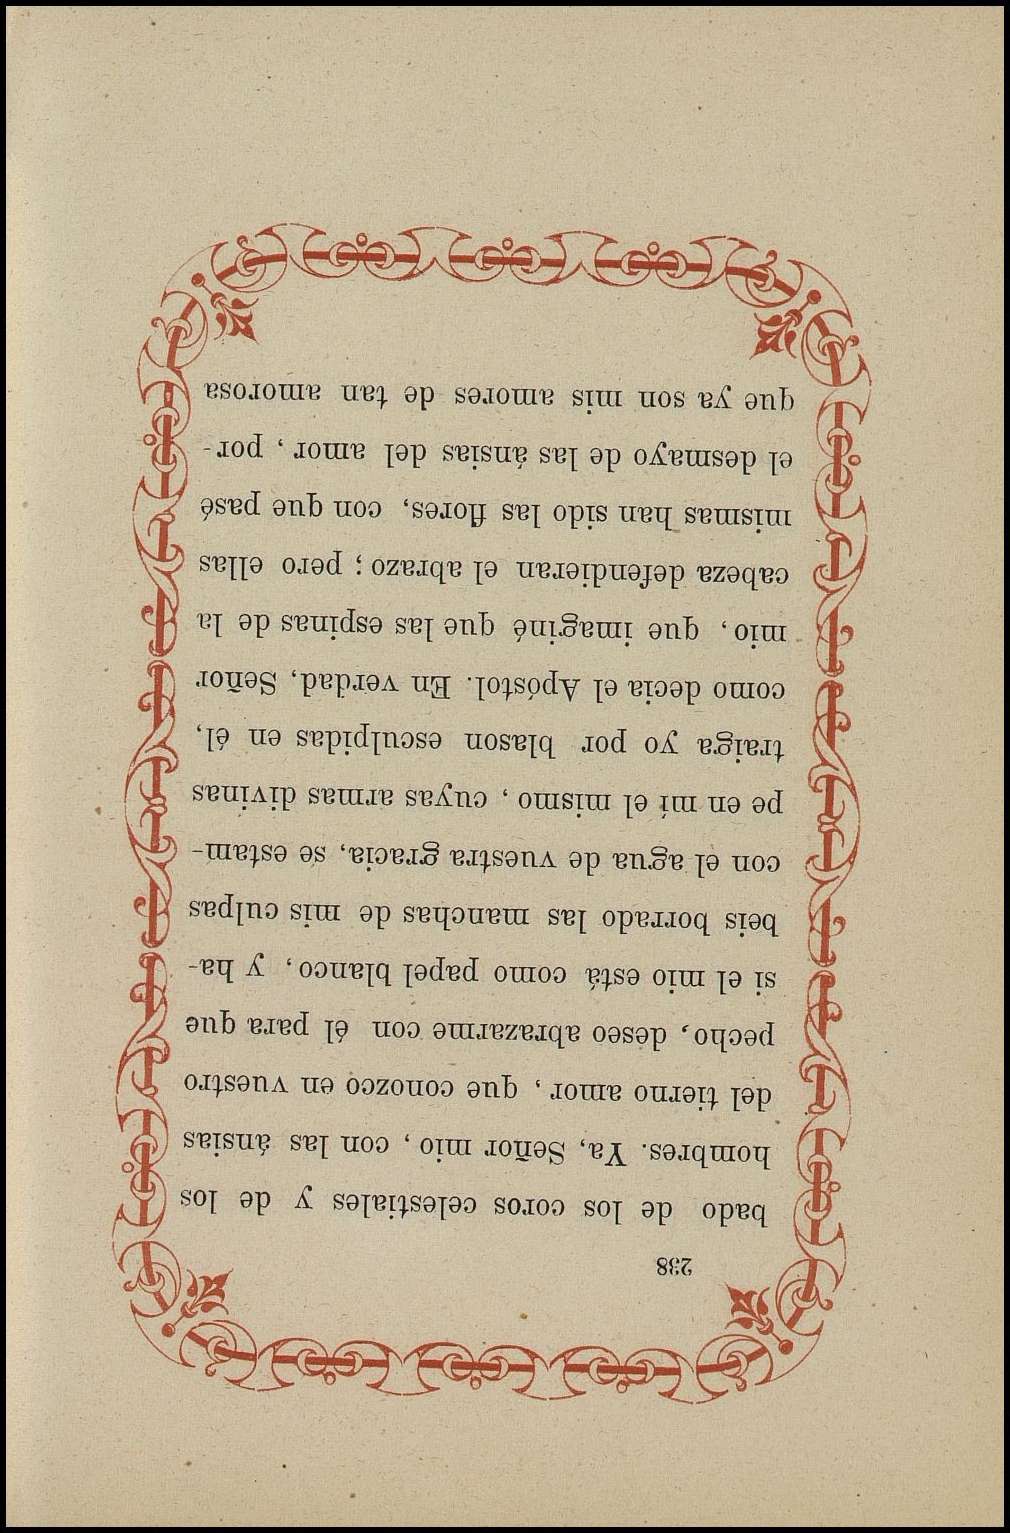 238
bado de los coros celestiales y de los
hombres. Ya, Señor mio, con las ánsias
del tierno amor, que conozco en vuestro
pecho, deseo abrazarme con él para que
si el mio está como papel blanco, y ha-
beis borrado las manchas de mis culpas
con el agua de vuestra gracia, se estam-
pe en mí el mismo, cuyas armas divinas
traiga yo por blason esculpidas en él,
como decia el Apóstol. En verdad, Señor
mio, que imaginé que las espinas de la
cabeza defendieran el abrazo; pero ellas
mismas han sido las flores, con que pasé
el desmayo de las ánsias del amor, por-
que ya son mis amores de tan amorosa